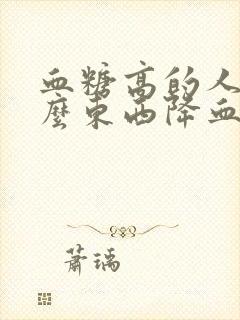 血糖高的人
麼東西降血
蕭瑀